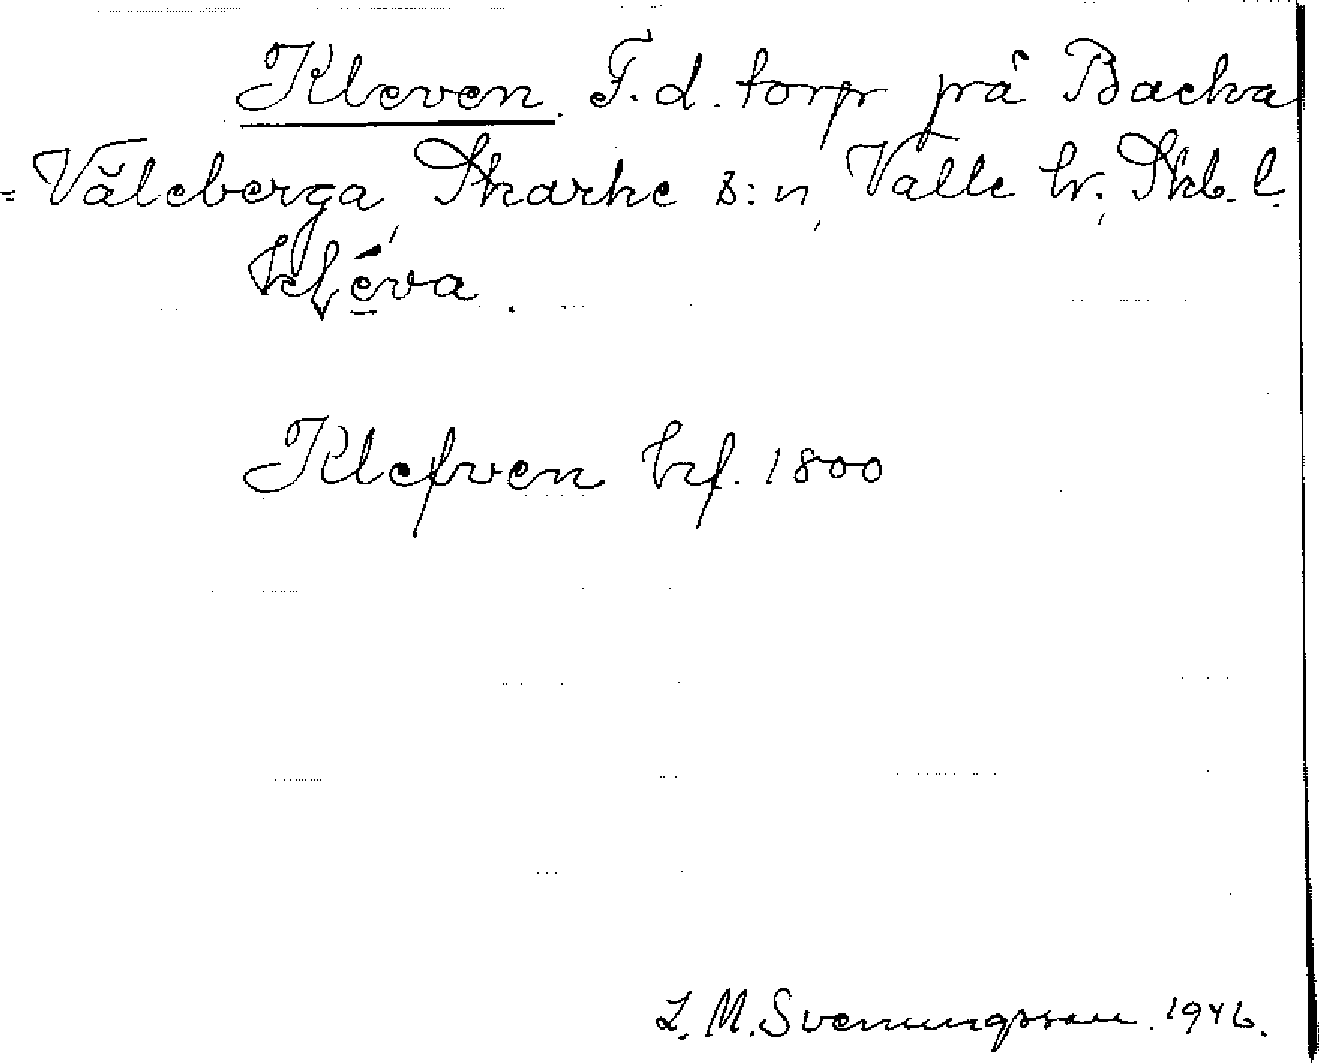 Kleven. F.d. torp på Backa
=Väleberga, Skarke s:n, Valle hr., Skb. l.
kléva.
Klefven hf. 1800
L. M. Svenungsson. 1946.